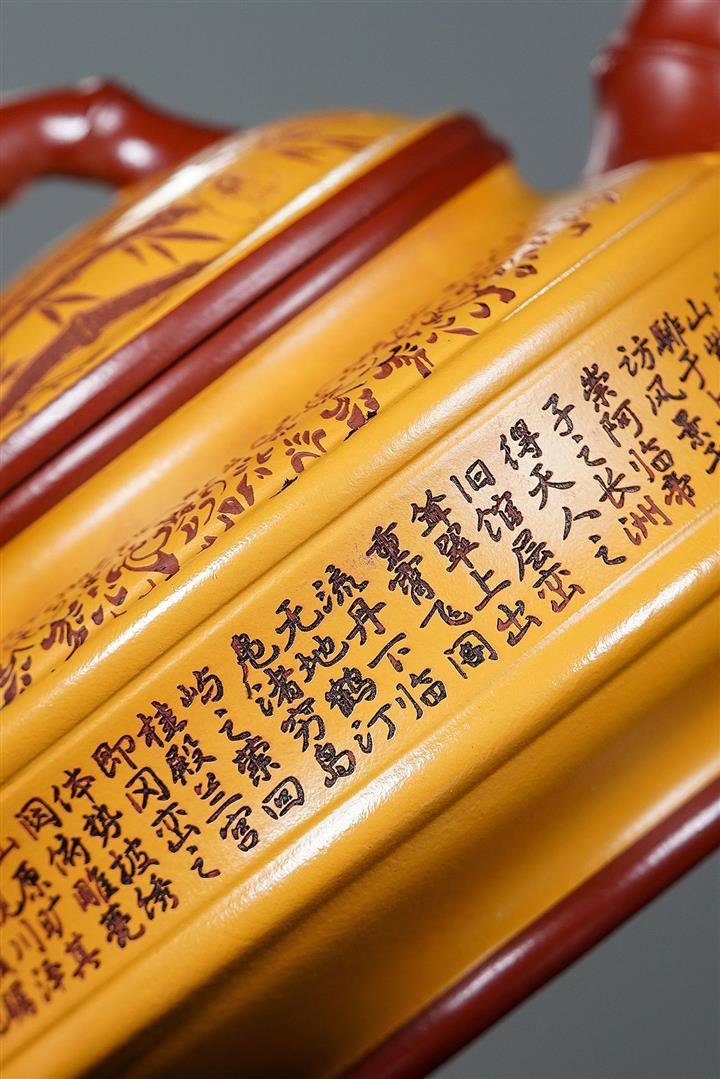 山紫
騑于
访风景于
崇阿临帝
子之长洲
得天人之
旧馆层峦
耸翠上出
重霄飞阁
流丹下临
无地鹤汀
凫渚穷岛
屿之萦回
桂殿兰宫
即冈峦之
体势披绣
闼俯雕甍
山原旷其
川泽
瞩